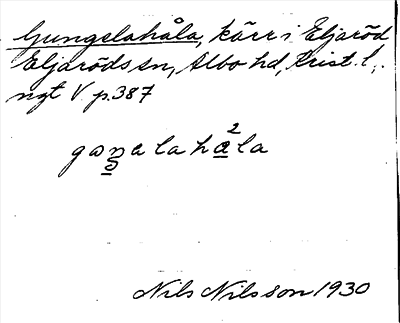 Gungslahåla, kärr i Eljaröd
Eljaröds sn, Albo hd, Krist. l.
ngt V p. 387
2
Nils Nilsson 1930